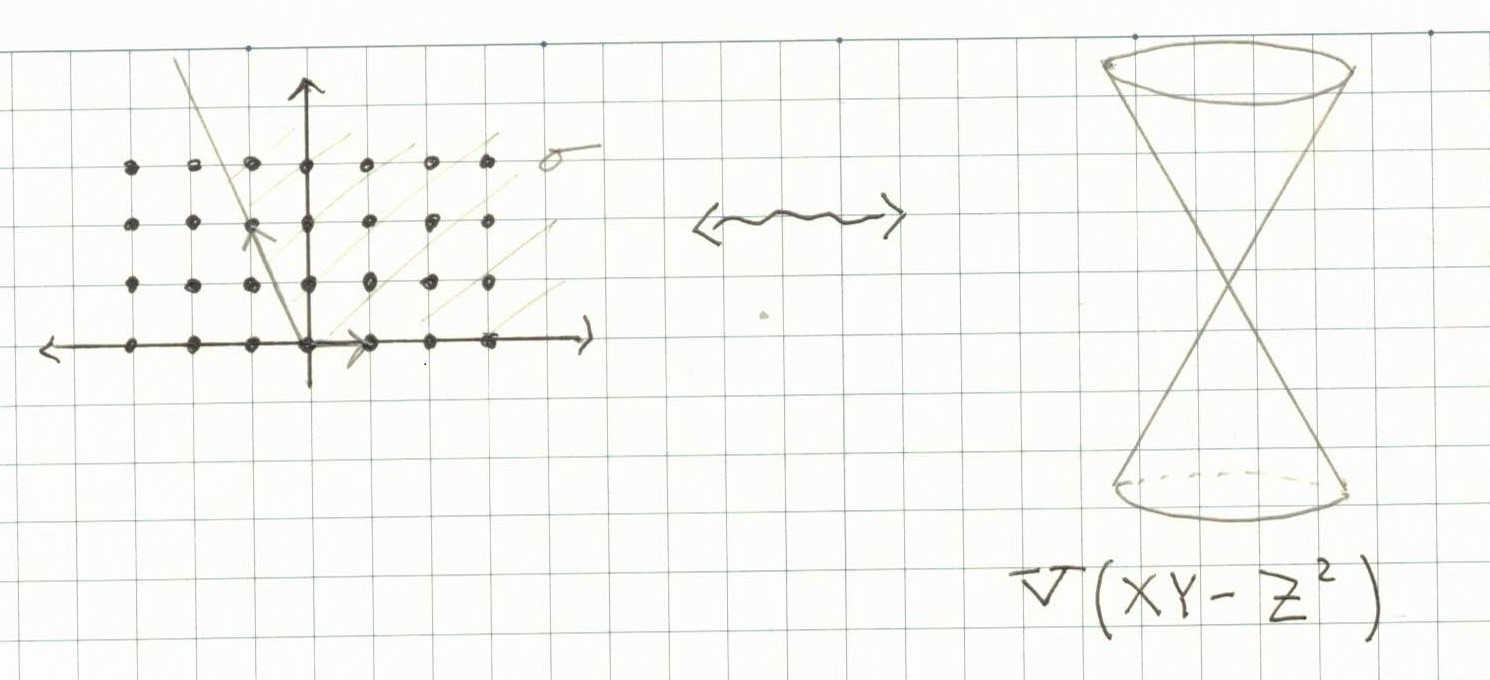 σ
V(XY-Z²)